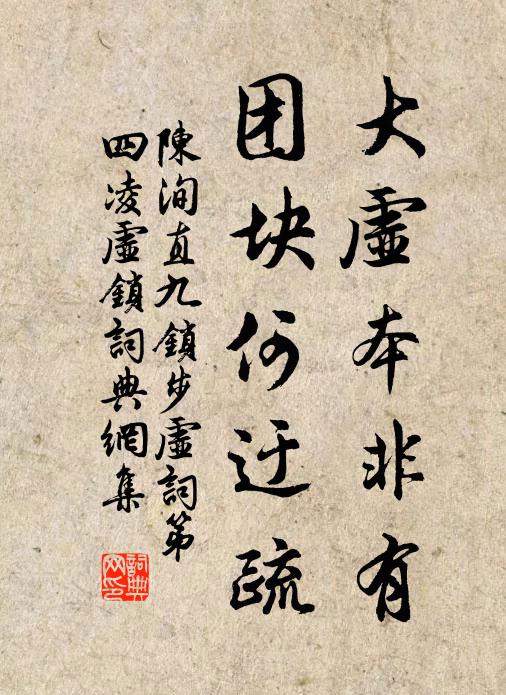 大虛本非有
团块何迂疏
陳洵直九鎖步虛詞第
四凌虛鎖詞典網集
詞典
网印